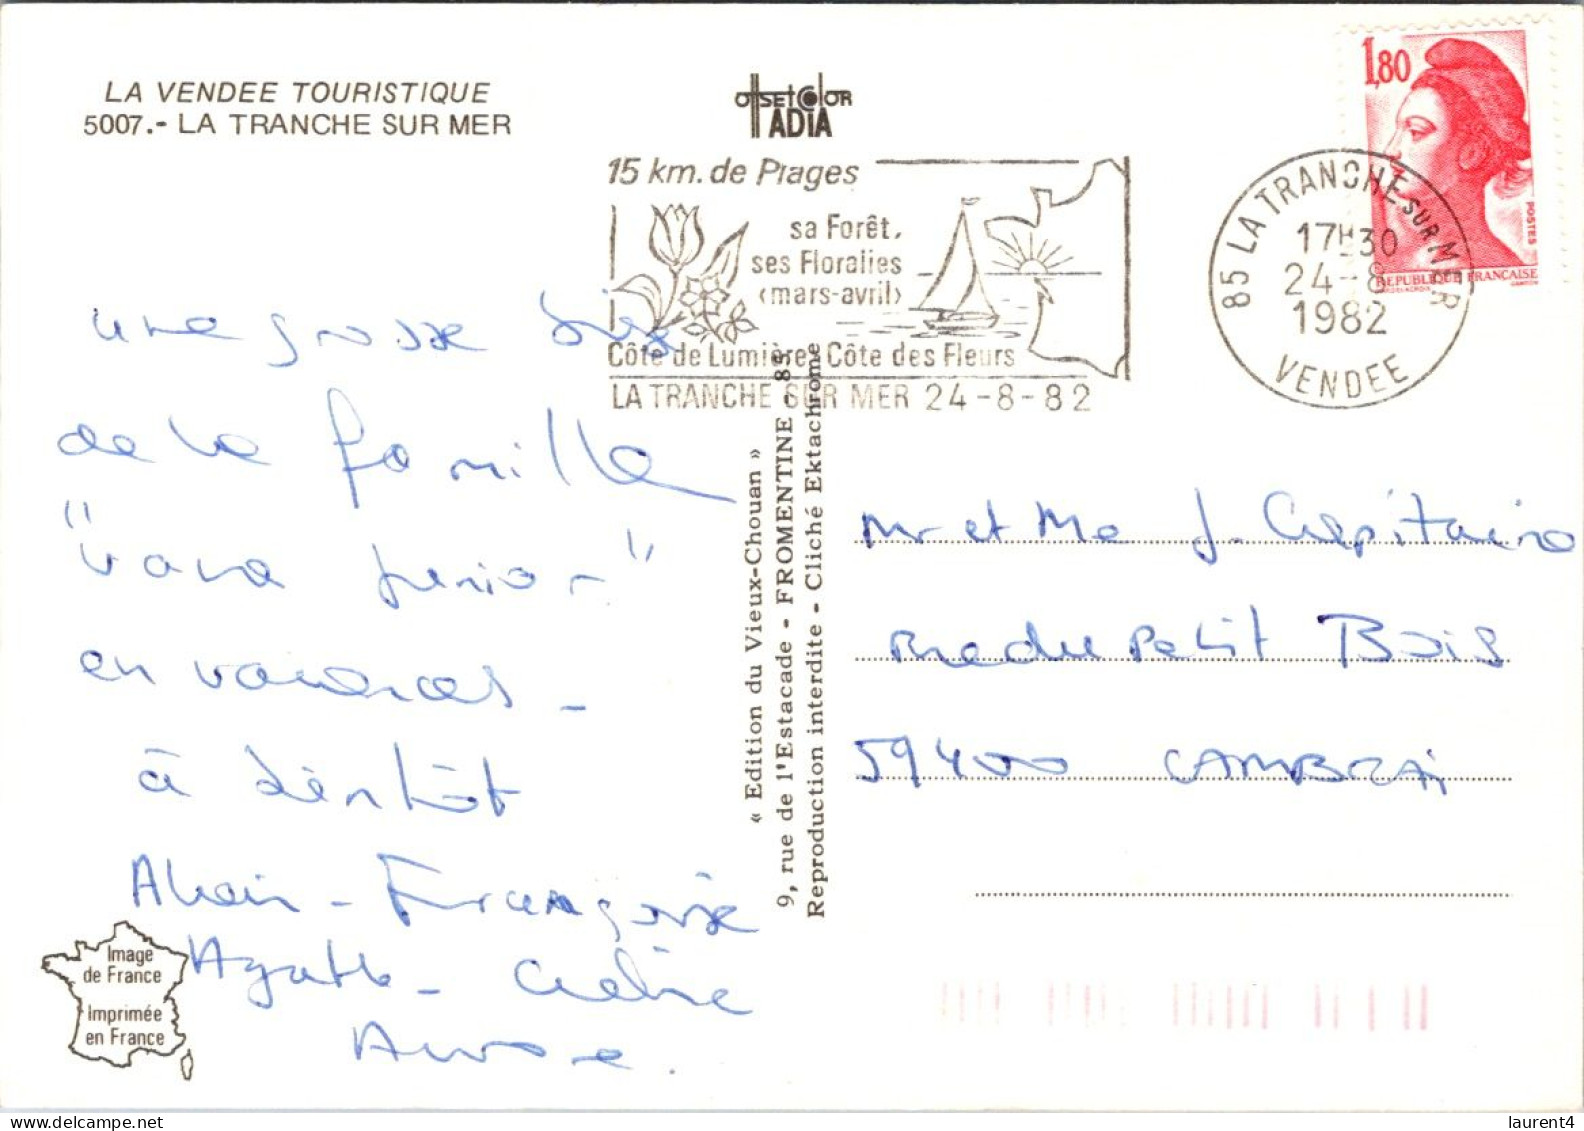 LA VENDEE TOURISTIQUE
5007.- LA TRANCHE SUR MER
OffsetColor
ADIA
15 km. de Plages
sa Forêt,
ses Floralies
<mars-avril>
Côte de Lumière, Côte des Fleurs
LA TRANCHE SUR MER 24-8-82
85 LA TRANCHE SUR MER
17H30
24-8
1982
VENDEE
1,80
POSTES
REPUBLIQUE FRANCAISE
GANDON
une grosse bise
de la famille
"
junior"
en vacances -
à bientôt
Alain - Françoise
Agathe - Céline
« Edition du Vieux-Chouan »
9, rue de l'Estacade - FROMENTINE - 85
Reproduction interdite - Cliché Ektachrome
Mr et Me J. Capitaine
Rue du Petit Bois
59400 CAMBRAi
Image
de France
Imprimée
en France
laurent4